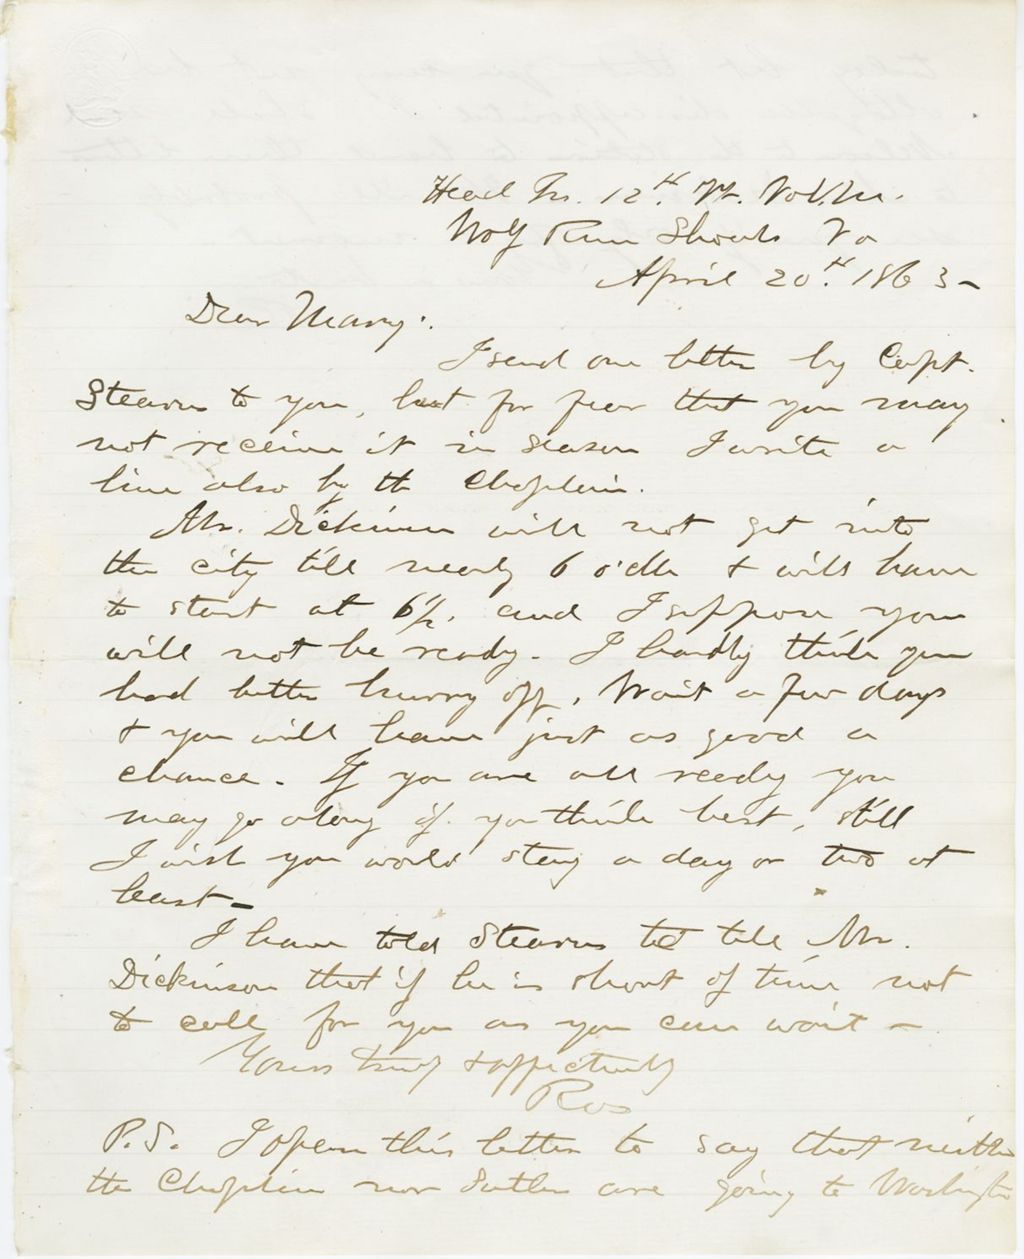 Head Qrs. 12th Vt. Vol. M.
Wolf Run Shoals Va
April 20th 1863-
Dear Mary.
I send one letter by Capt.
Stearns to you, but for fear that you may
not receive it in season I write a
line also by the Chaplain.
Mr. Dickinson will not get into
the city till nearly 6 o'clk & will have
to start at 6½. and I suppose you
will not be ready. I hardly think you
had better hurry off, Wait a few days
& you will have just as good a
chance. If you are all ready you
may go along if you think best, still
I wish you would stay a day or two at
least-
I have told Stearns to tell Mr.
Dickinson that if he is short of time not
to call for you as you can wait-
Yours truly & affectively
Ros
P.S. I open this letter to say that neither
the Chaplain nor Sutler are going to Washington